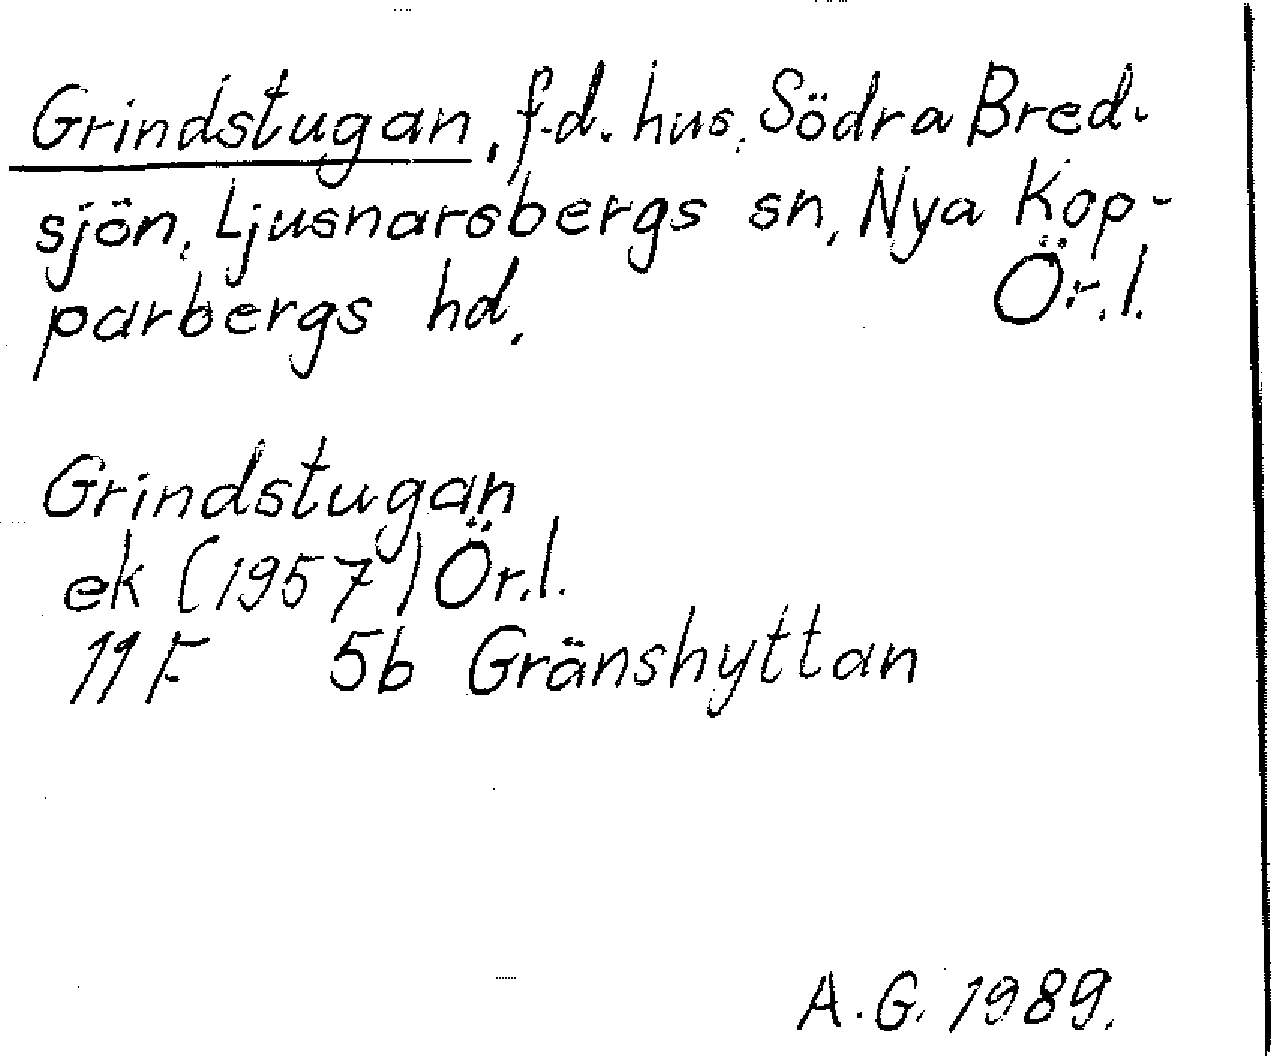 Grindstugan, f.d. hus, Södra Bred-
sjön, Ljusnarsbergs sn, Nya Kop-
parbergs hd, Ör.l.
Grindstugan
ek (1957) Ör.l.
11F 5b Gränshyttan
A.G. 1989.